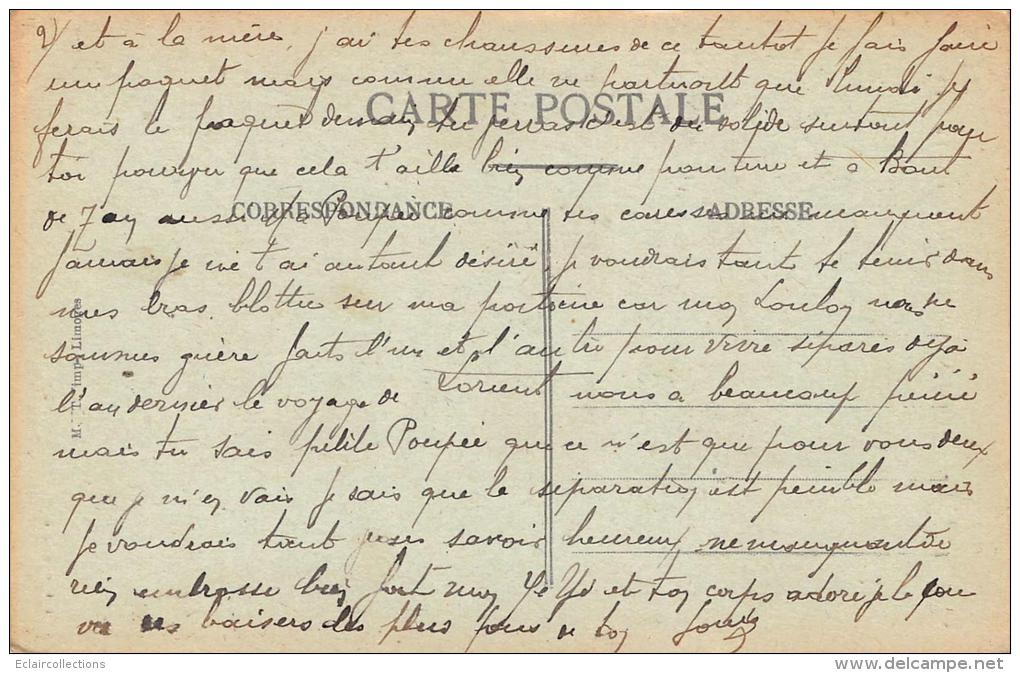 2) et à la mère, j'ai tes chaussures de ce tantot je fais faire
un paquet mais comme elle ne que lundi je
CARTE POSTALE
ferais le paquet demain tu verras c'est du solide surtout pour
toi pourvu que cela t'aille bien comme pointure et à Bout
de 7 ans aussi Poupée comme tes caresses me manquent
CORRESPONDANCE
ADRESSE
Jamais je ne t'ai autant désiré, je voudrais tant te tenir dans
mes bras blottie sur ma poitrine car mon Loulou nous ne
sommes guère faits l'un et l'autre pour vivre séparés déjà
l'an dernier le voyage de Lorient nous a beaucoup peiné
mais tu sais petite Poupée que ce n'est que pour vous deux
que je m'en vais je sais que la séparation est penible mais
je voudrais tant vous savoir heureux ne manquant de
rien embrasse bien fort mon et ton corps adoré je le
de mes baisers des plus fous de ton
M. T. imp. Limoges
Eclaircollections
www.delcampe.net